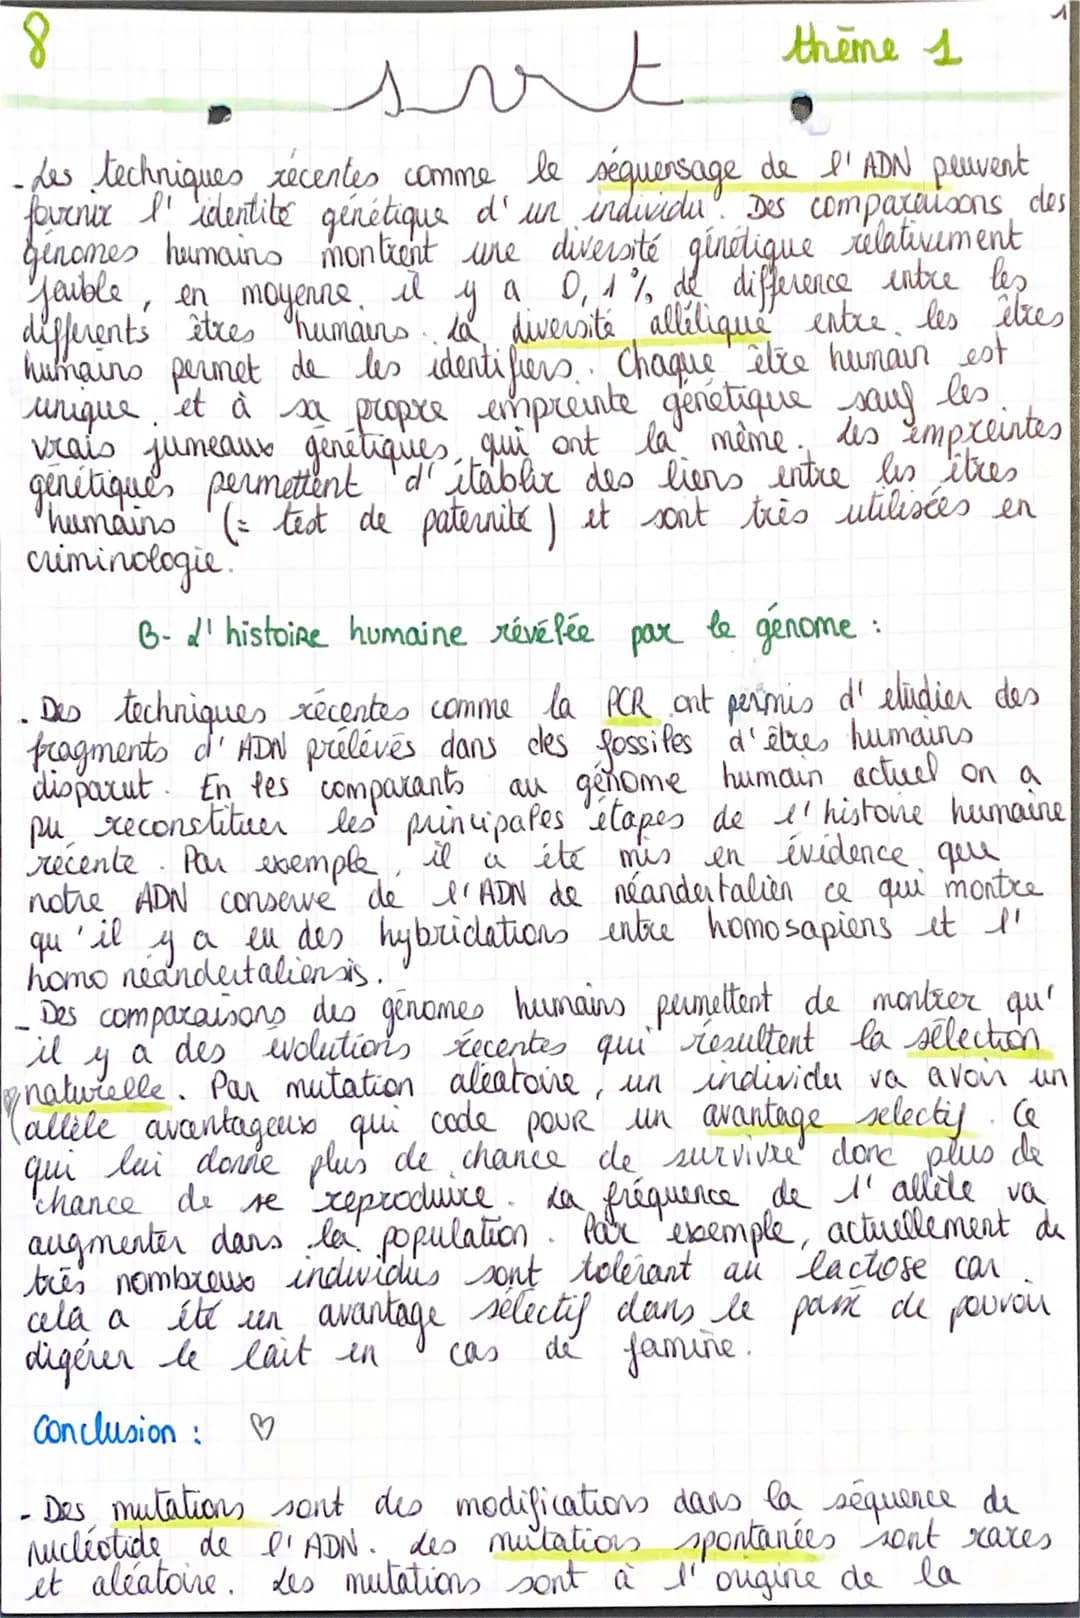 8
thème 1
1
svt
- Les techniques récentes comme le séquensage de l'ADN peuvent
fournir l'identité génétique d'un individu. Des comparaisons des
génomes humains montrent une diversité génétique relativement
faible, en moyenne il y a 0,1% de différence entre les
differents êtres humains. La diversité allélique entre les êtres
humains permet de les identifiers. Chaque être humain est
unique et à sa propre empreinte génétique sauf les
vrais jumeaux génétiques qui ont la même. Les empreintes
génétiques permettent d'établir des liens entre les êtres
humains (= test de paternité) et sont très utilisées en
criminologie.
B- L'histoire humaine révélée par le génome :
. Des techniques récentes comme la PCR ont permis d'etudier des
fragments d'ADN prélévés dans des fossiles d'êtres humains
disparut. En les comparants au génome humain actuel on a
pu reconstituer les principales étapes de l'histoire humaine
récente. Par exemple, il a été mis en évidence que
notre ADN conserve de l'ADN de néandertalien ce qui montre
qu'il y a eu des hybridations entre homosapiens et l'
homo néandertaliensis.
- Des comparaisons des génomes humains permettent de montrer qu'
il y a des évolutions récentes qui résultent la sélection
naturelle. Par mutation aléatoire, un individu va avoir un
allèle avantageux qui code pour un avantage selectif. Ce
qui lui donne plus de chance de survivre donc plus de
chance de se reproduire. La fréquence de l'allèle va
augmenter dans la population. Par exemple, actuellement de
très nombreux individus sont tolérant au lactose car
cela a été un avantage sélectif dans le passé de pouvoir
digérer le lait en cas de famine.
Conclusion : ♡
- Des mutations sont des modifications dans la séquence de
nucléotide de l'ADN. Les mutations spontanées sont rares
et aléatoire. Les mutations sont à l'origine de la